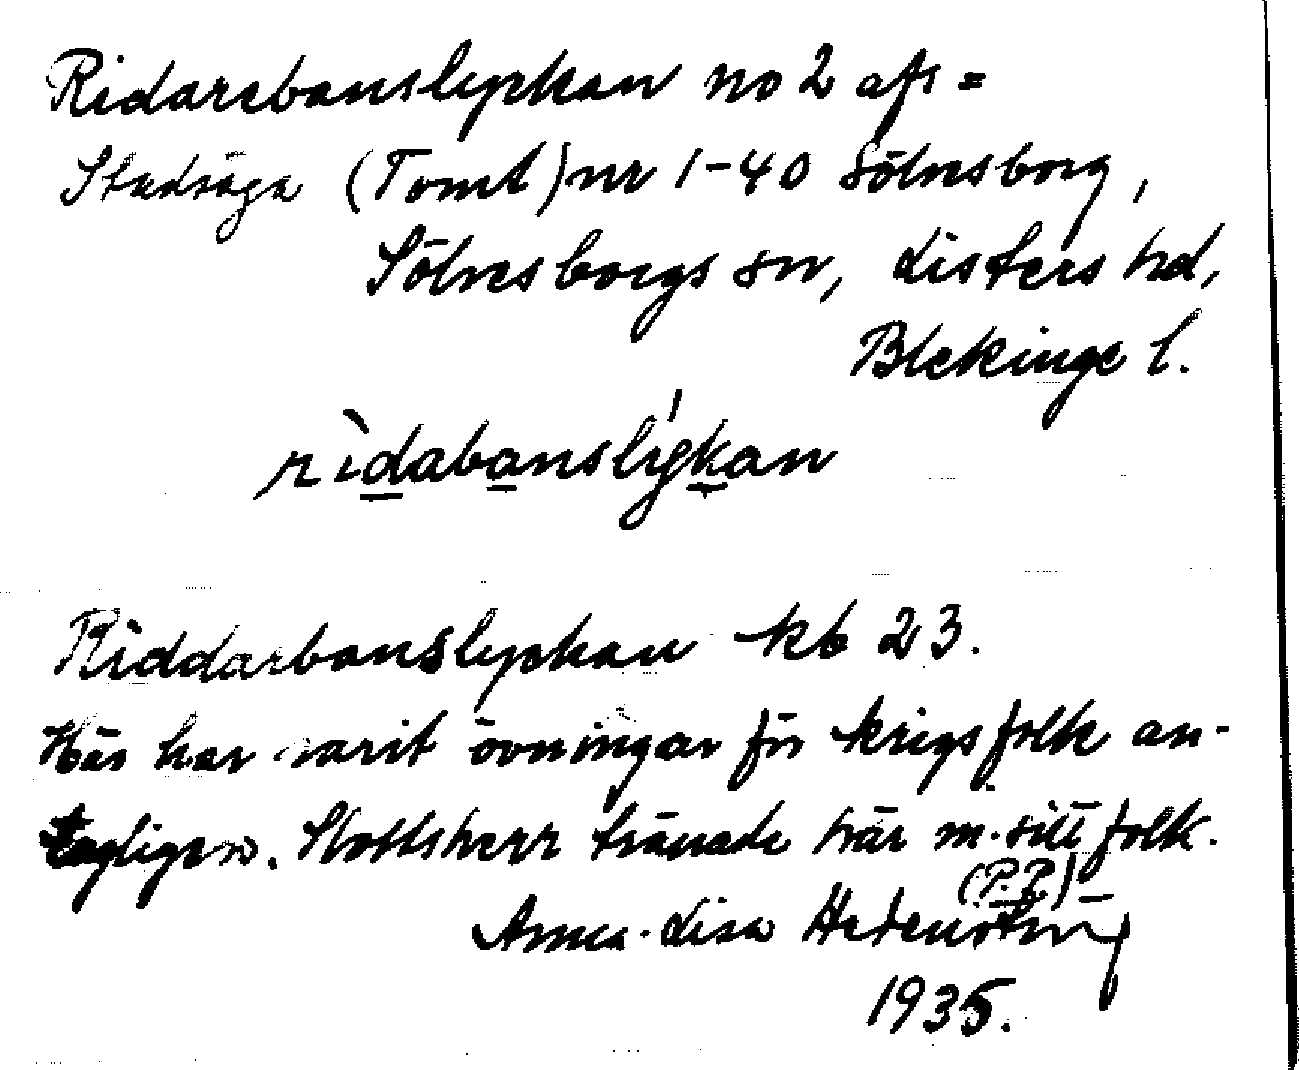 Ridarebanslyckan no 2 afs =
Stadsäga (Tomt) nr 1-40 Sölvesborg,
Sölvesborgs sn, Listers hd,
Blekinge l.
rìdabanslýkan
Riddarbanslyckan kb 23.
Här har varit övningar för krigsfolk an-
tagligen. Slottsherr tränade här m. sitt folk.
(P.P)
Anna-Lisa Hedenström
1935.